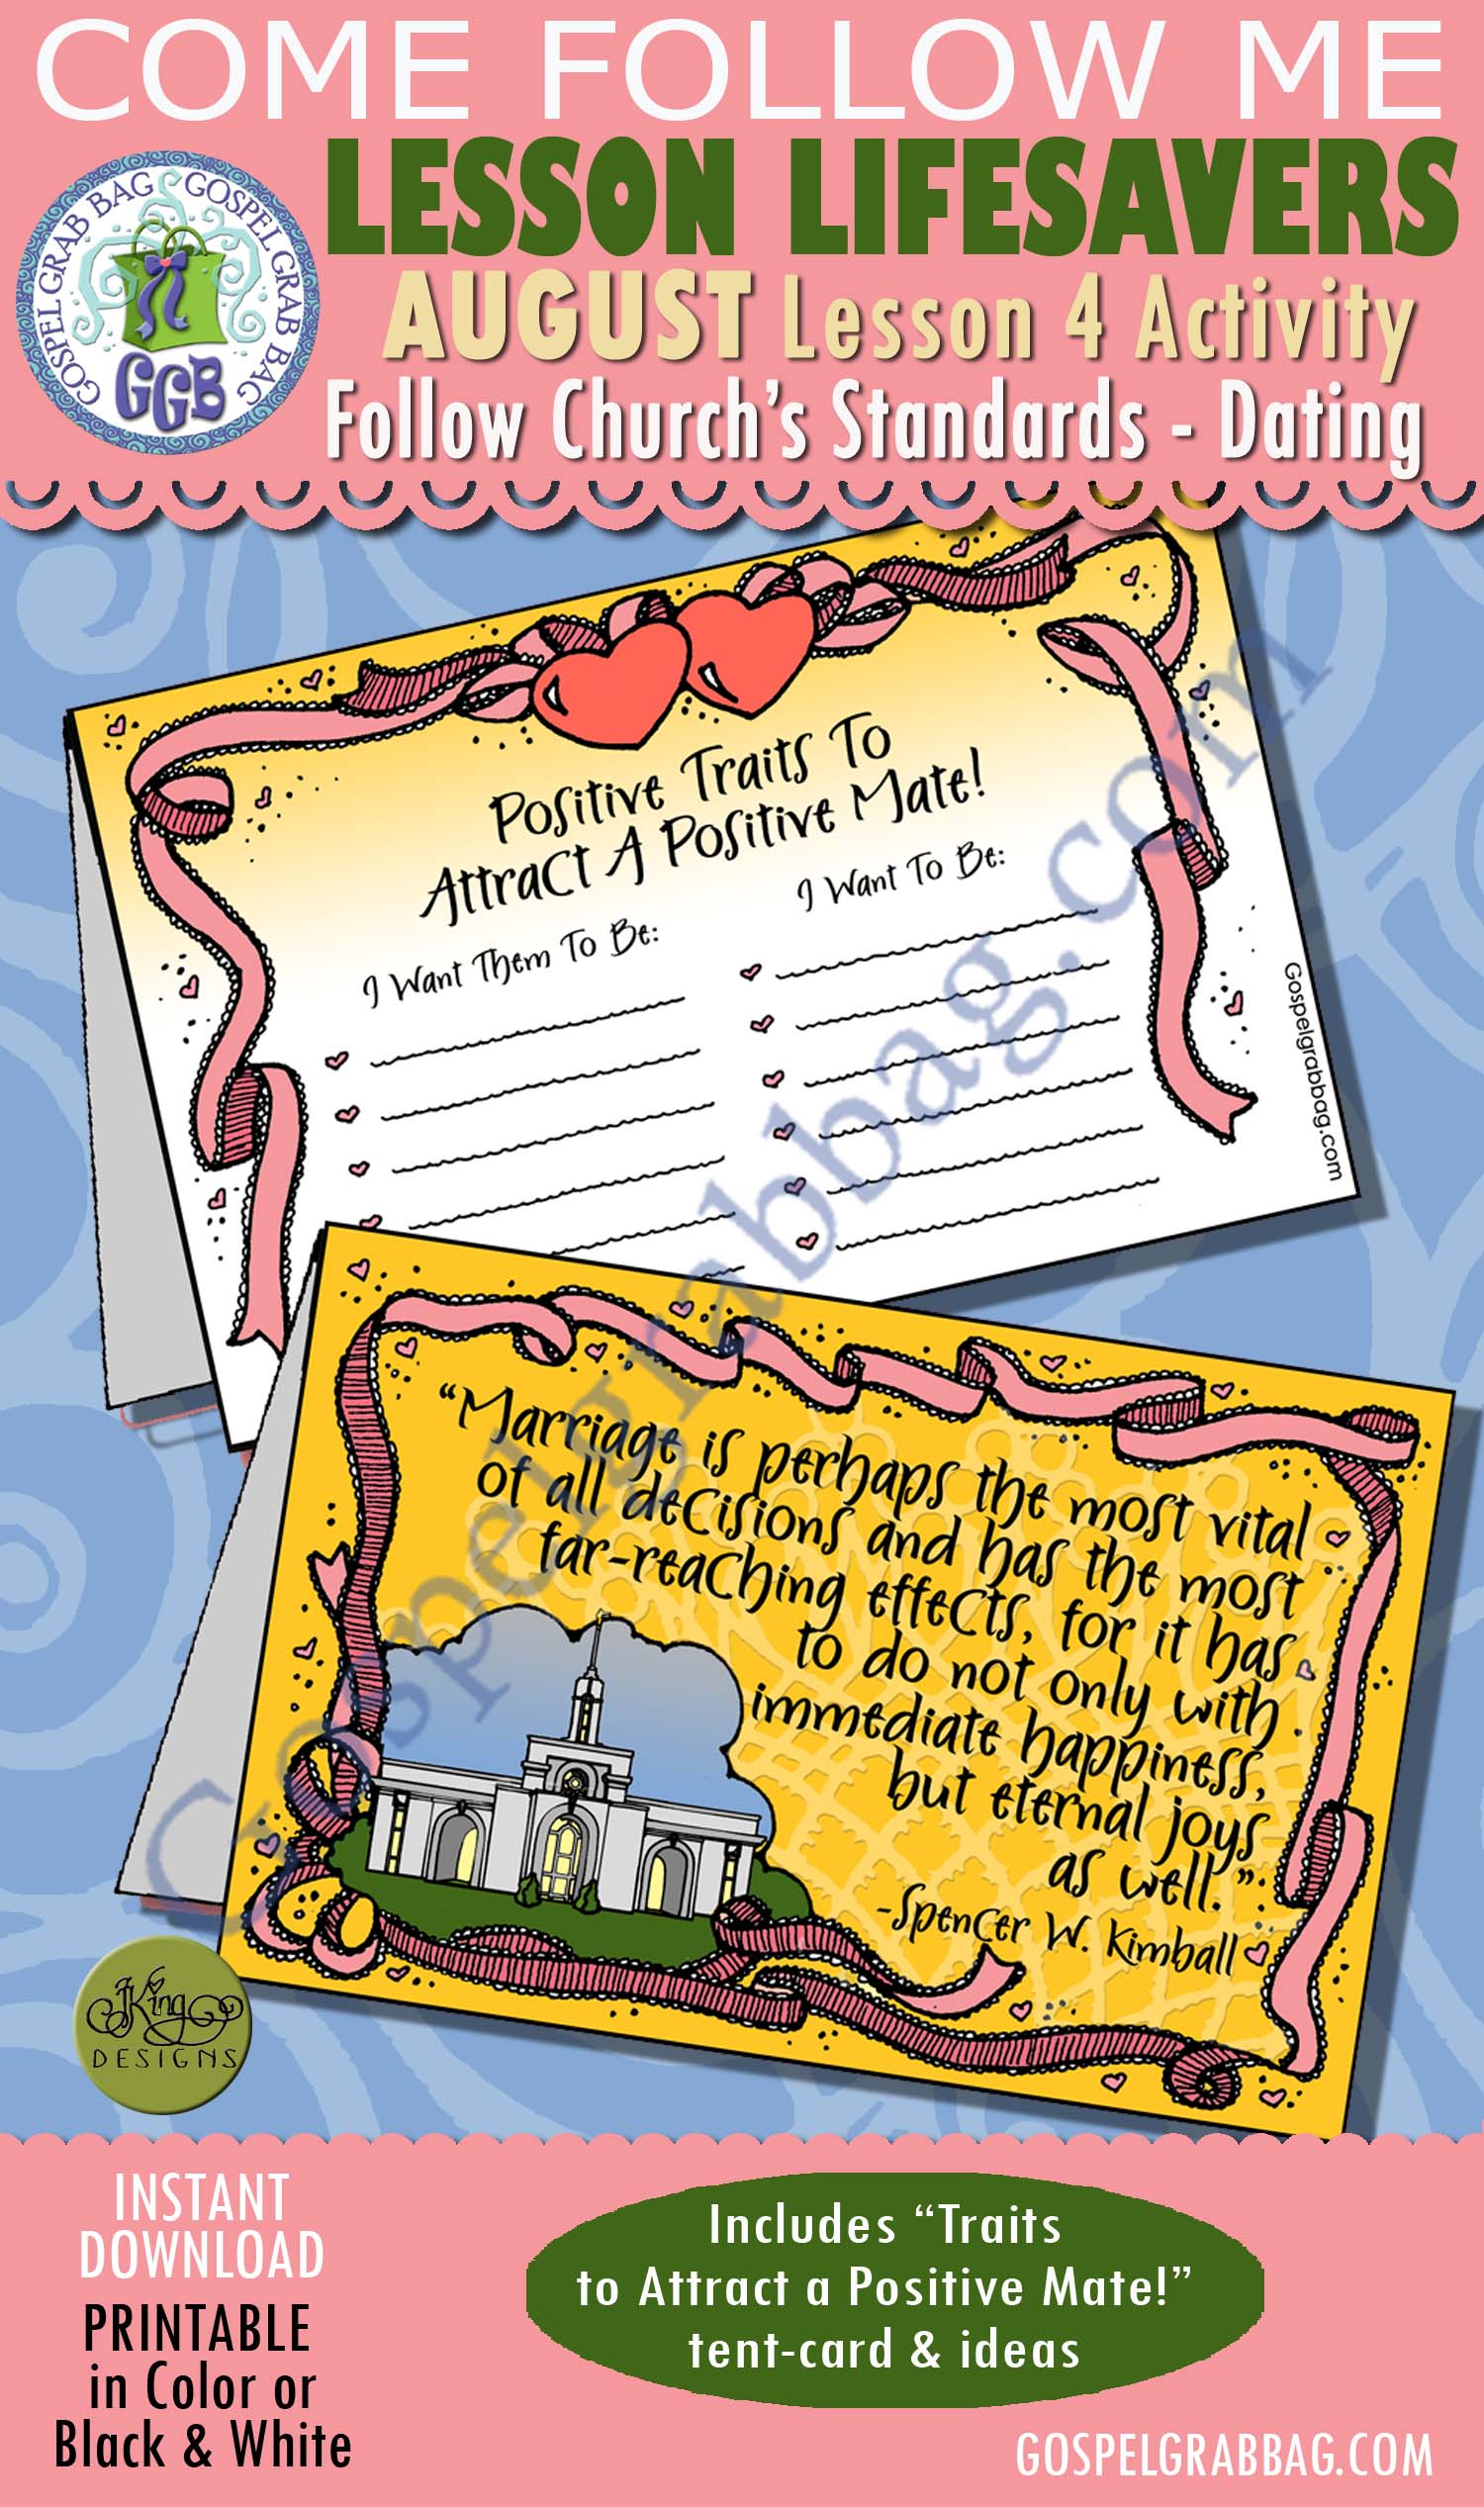 COME FOLLOW ME
LESSON LIFESAVERS
GOSPEL GRAB BAG GOSPEL GRAB BAG
GGB
AUGUST Lesson 4 Activity
Follow Church's Standards - Dating
Positive Traits To
Attract A Positive Mate!
I Want Them To Be:
I Want To Be:
Gospelgrabbag.com
Gospelgrabbag.com
"Marriage is perhaps the most vital
of all decisions and has the most
far-reaching effects, for it has
to do not only with
immediate happiness,
but eternal joys
as well."
-Spencer W. Kimball
JKing
DESIGNS
INSTANT
DOWNLOAD
PRINTABLE
in Color or
Black & White
Includes “Traits
to Attract a Positive Mate!”
tent-card & ideas
GOSPELGRABBAG.COM